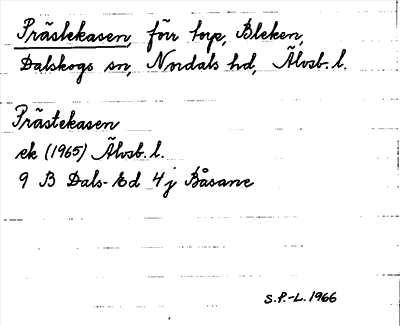 Prästekasen, förr torp, Bleken,
Dalskogs sn, Nordals hd, Älvsb. l.
Prästekasen
ek (1965) Älvsb. l.
9 B Dals-Ed 4 j Båsane
S.P.-L. 1966